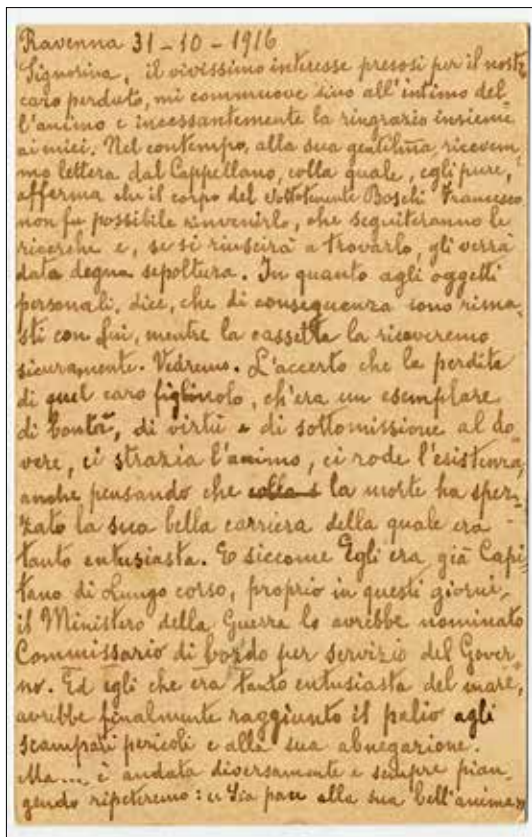 Ravenna 31-10-1916
Signorina, il vivissimo interesse presosi per il nostro
caro perduto, mi commuove sino all'intimo del-
l'animo e incessantemente la ringrazio insieme
ai miei. Nel contempo, alla sua gentilma, ricevem-
mo lettera dal Cappellano, colla quale, egli pure,
afferma che il corpo del Sottotenente Boschi Francesco
non fu possibile rinvenirlo, che seguiteranno le
ricerche e, se si riuscirà a trovarlo, gli verrà
data degna sepoltura. In quanto agli oggetti
personali, dice, che di conseguenza sono rima-
sti con lui, mentre la cassetta la riceveremo
sicuramente. Vedremo. L'accerto che la perdita
di quel caro figliuolo, ch'era un esemplare
di bontà, di virtù e di sottomissione al do-
vere, ci strazia l'animo, ci rode l'esistenza,
anche pensando che la morte ha spez-
zato la sua bella carriera della quale era
tanto entusiasta. E siccome Egli era già Capi-
tano di Lungo corso, proprio in questi giorni,
il Ministero della Guerra lo avrebbe nominato
Commissario di bordo per servizio del Gover-
no. Ed egli che era tanto entusiasta del mare,
avrebbe finalmente raggiunto il palio agli
scampati pericoli e alla sua abnegazione.
Ma.... è andata diversamente e sempre pian-
gendo ripeteremo: "Sia pace alla sua bell'anima"